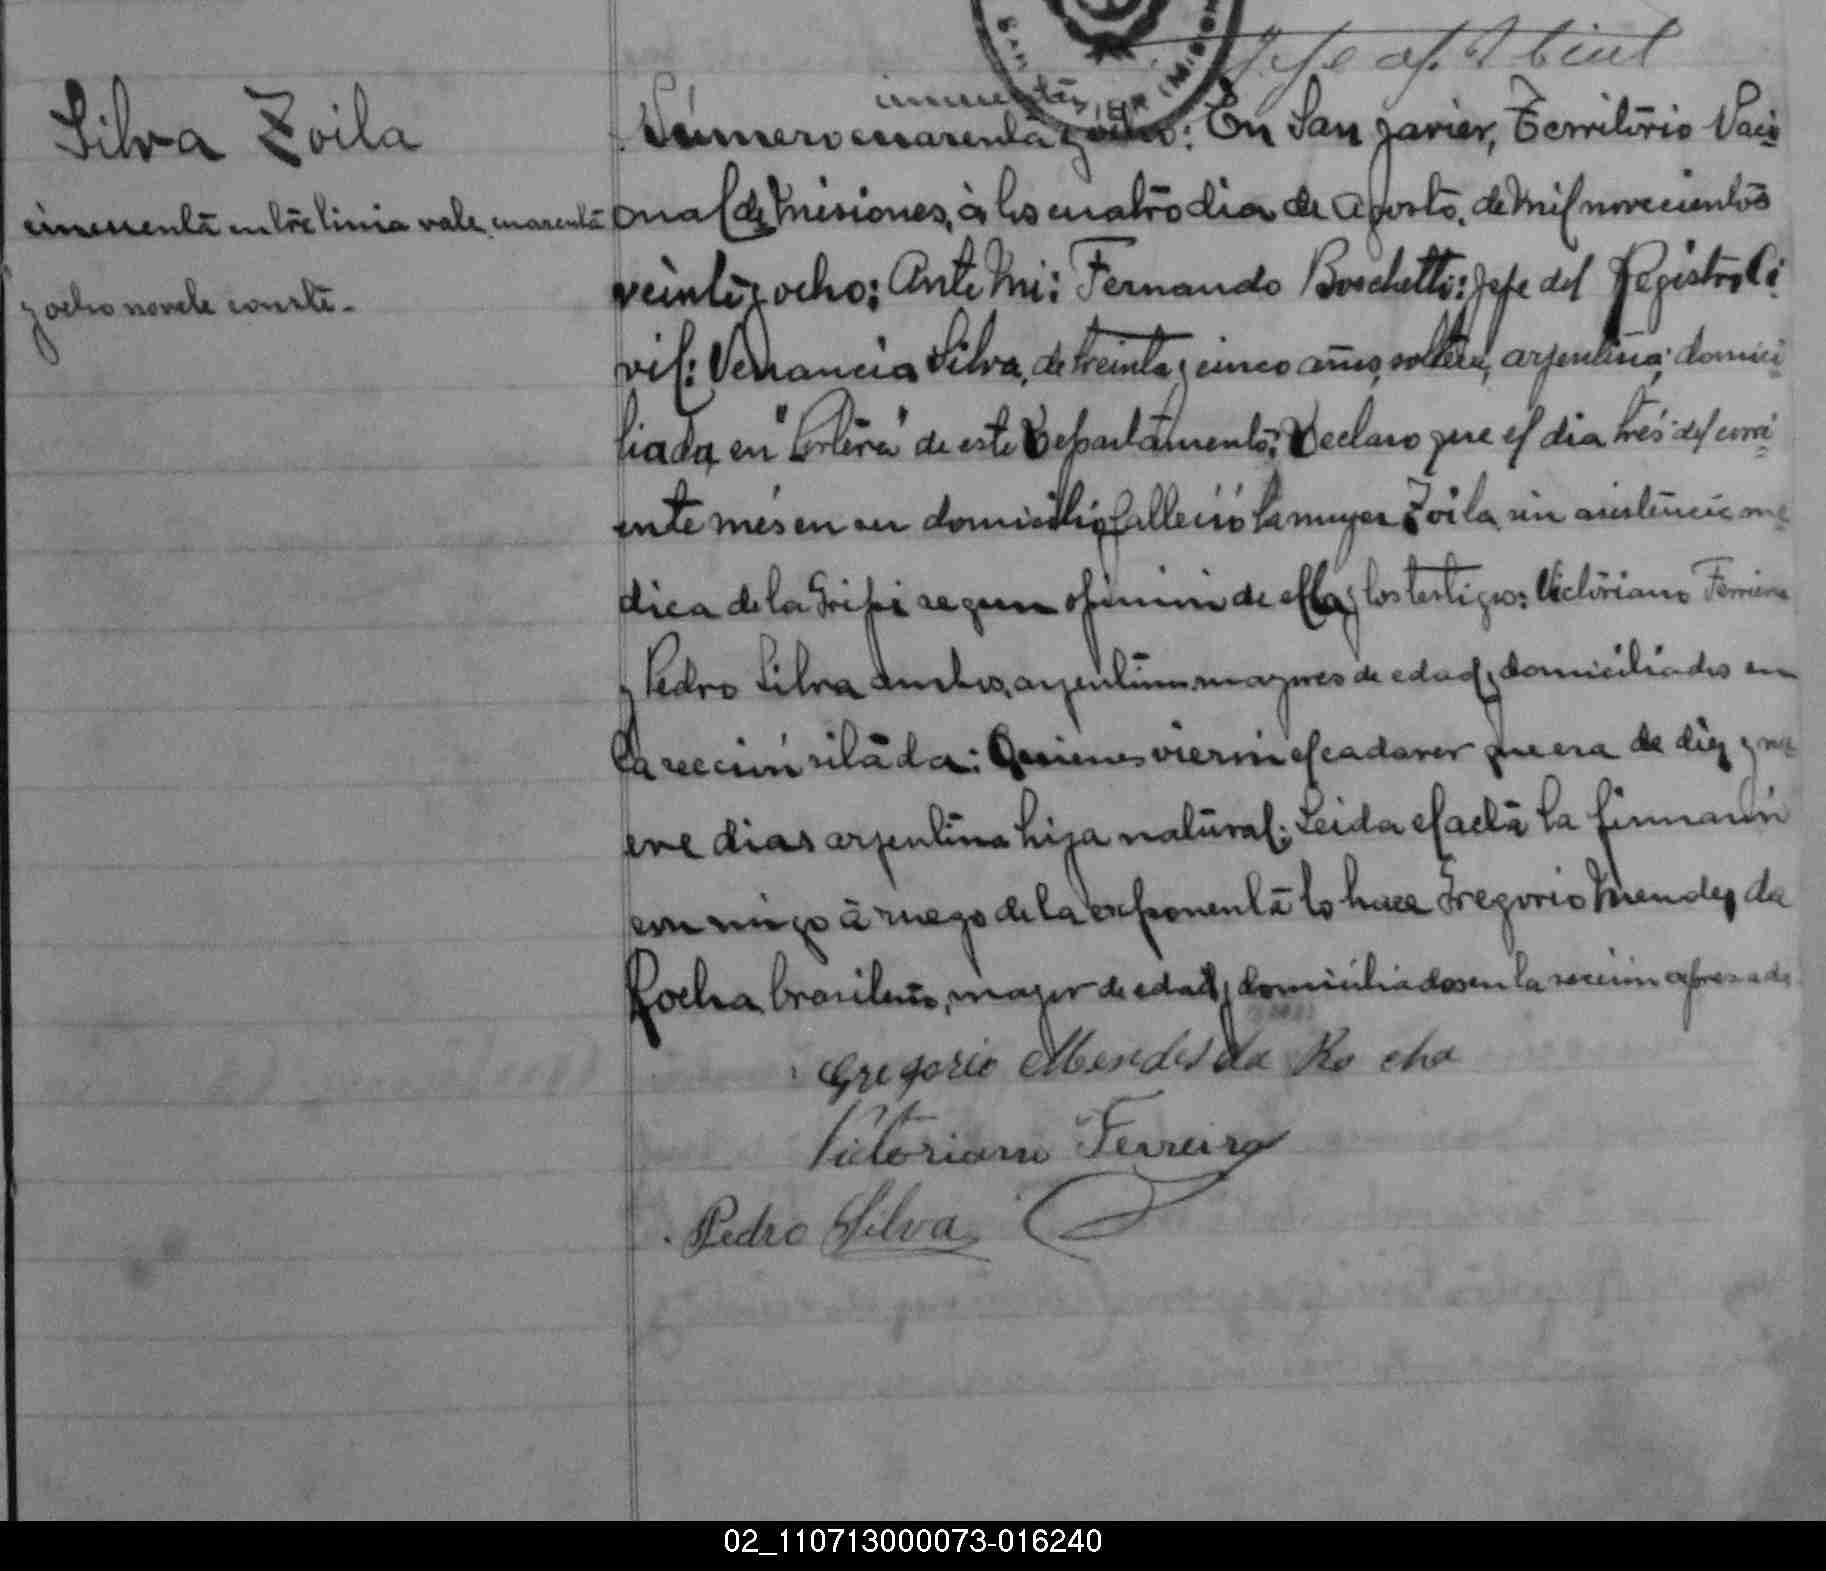 Jefe of. R Civil
SAN JAVIER (MISIONES)
Silva Zoila
cincuenta entre linia vale, cuarenta
y ocho novale conste.-
cincuenta
Número cuarenta y ocho: En San Javier, Territorio Naci=
onal de Misiones, à los cuatro dia de Agosto, de Mil novecientos
veinte y ocho: Ante Mi: Fernando Boschetti: Jefe del Registro Ci
vil: Venancia Silva, de treinta y cinco años, soltera, arjentina, domici=
liada, en "Portera" de este Departamento: Declaro que el dia trés del corri=
ente més en su domicilio fallecio la mujer Zoila, sin asistencia me
dica de la Gripi segun opinion de ella y los testigos: Victoriano Ferreira
y Pedro Silva ambos, arjentinos mayores de edad y domiciliados en
la seccion citada: Quienes vieron el cadaver que era de diez y nu
eve dias arjentina hija natural: Leida el acta la firmaron
con migo à ruego de la exponenta lo hace Gregorio Mendez da
Rocha, brasilero, mayor de edad y domiciliado en la seccion expresada
Gregorio Mendes da Rocha
Victoriano Ferreira
Pedro Silva
02_110713000073-016240